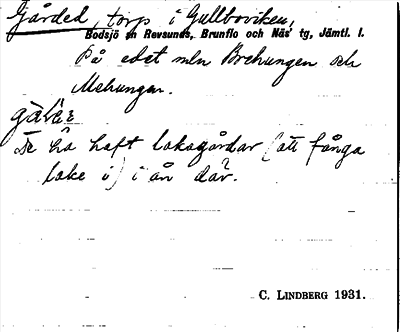 Gårded, torp i Gullboviken,
Bodsjö sn Revsunds, Brunflo och Näs' tg, Jämtl. l.
På edet mln Brehungen och
Mehungen.
De ha haft lakagårdar (att fånga
lake i) i ån där.
C. LINDBERG 1931.